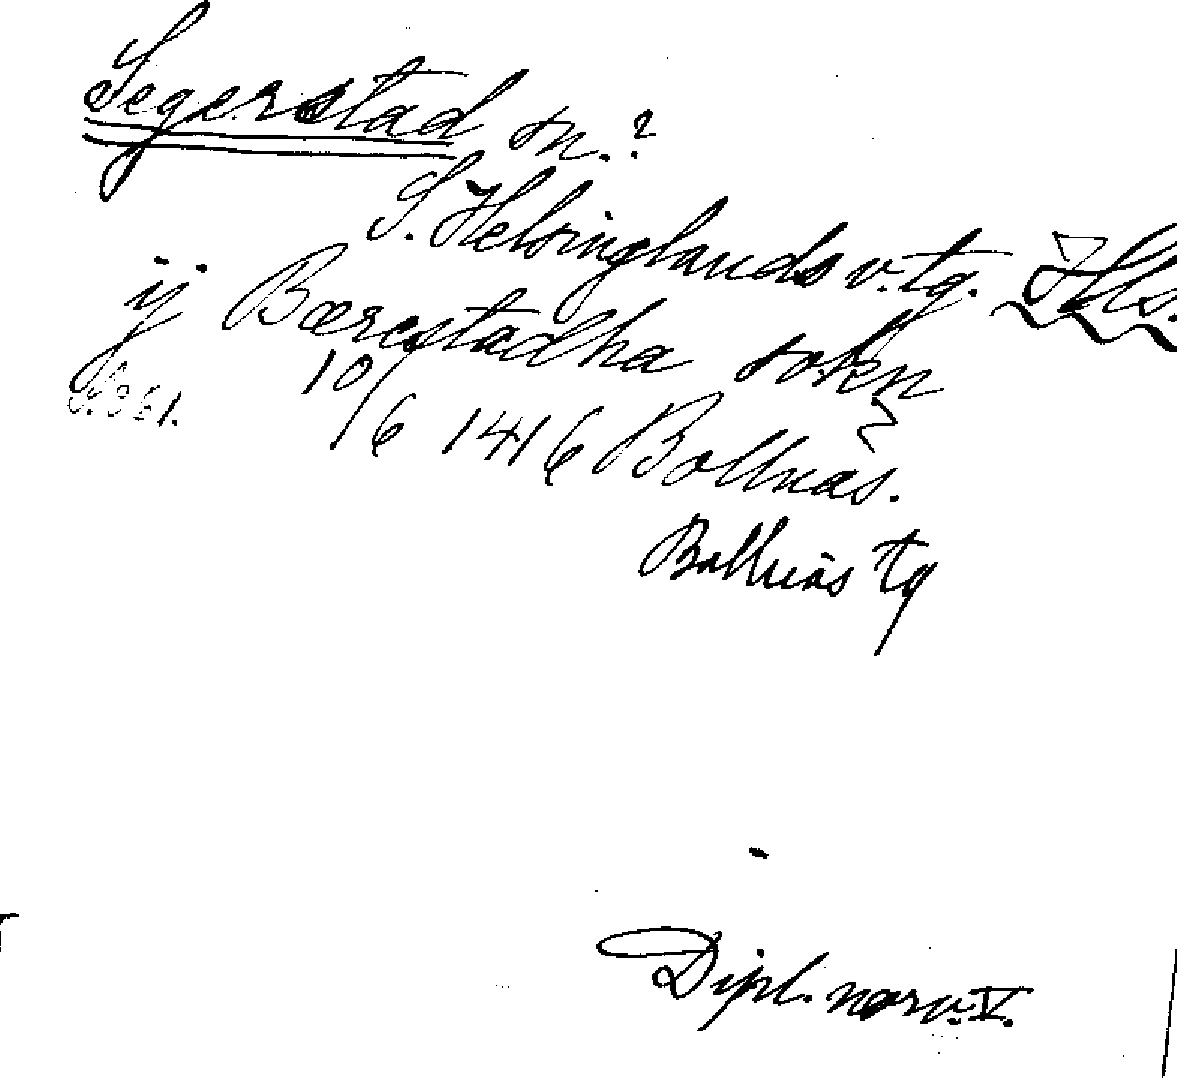 Segerstad sn.?
S. Helsinglands v. tg. Hls.
ij Bærestadha sokn
S. 361.
10/6 1416 Bollnäs.
Bollnäs tg
Dipl. norv. V.